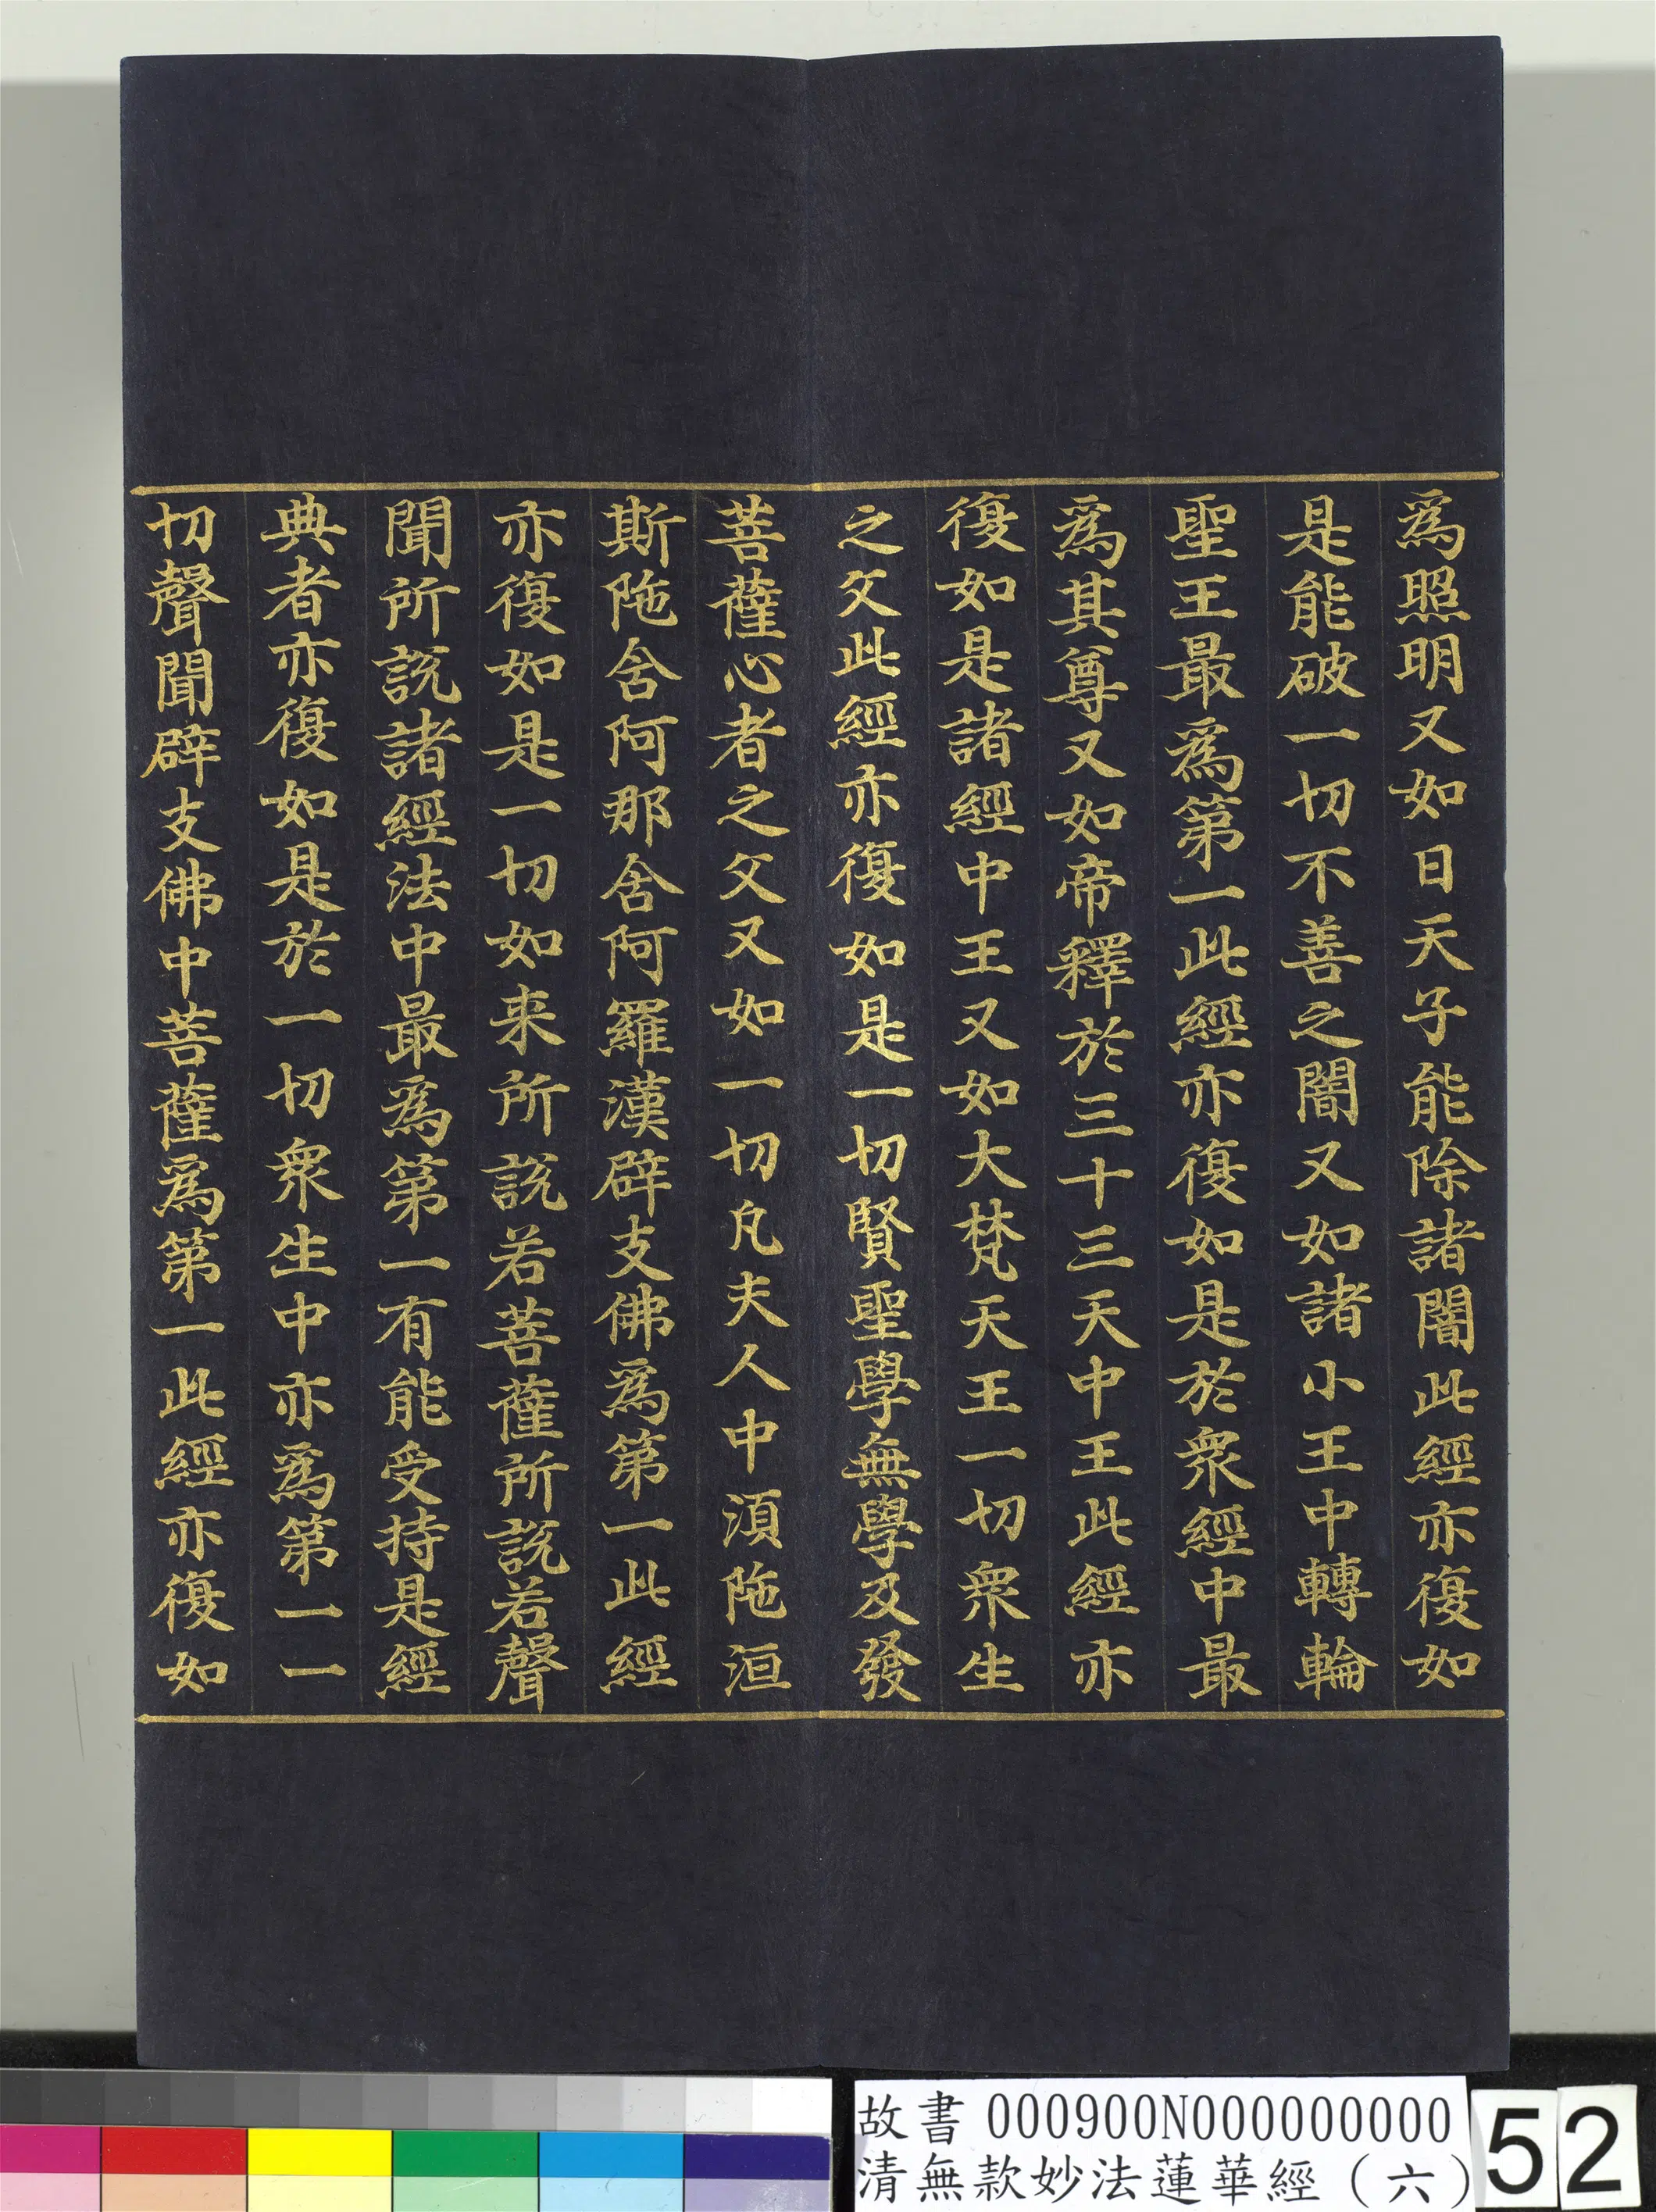 為照明又如日天子能除諸闇此經亦復如
是能破一切不善之闇又如諸小王中轉輪
聖王最為第一此經亦復如是於眾經中最
為其尊又如帝釋於三十三天中王此經亦
復如是諸經中王又如大梵天王一切眾生
之父此經亦復如是一切賢聖學無學及發
菩薩心者之父又如一切凡夫人中須陁洹
斯陁含阿那含阿羅漢辟支佛為第一此經
亦復如是一切如来所說若菩薩所說若聲
聞所說諸經法中最為第一有能受持是經
典者亦復如是於一切眾生中亦為第一一
切聲聞辟支佛中菩薩為第一此經亦復如
故書 000900N000000000
清無款妙法蓮華經（六）
52